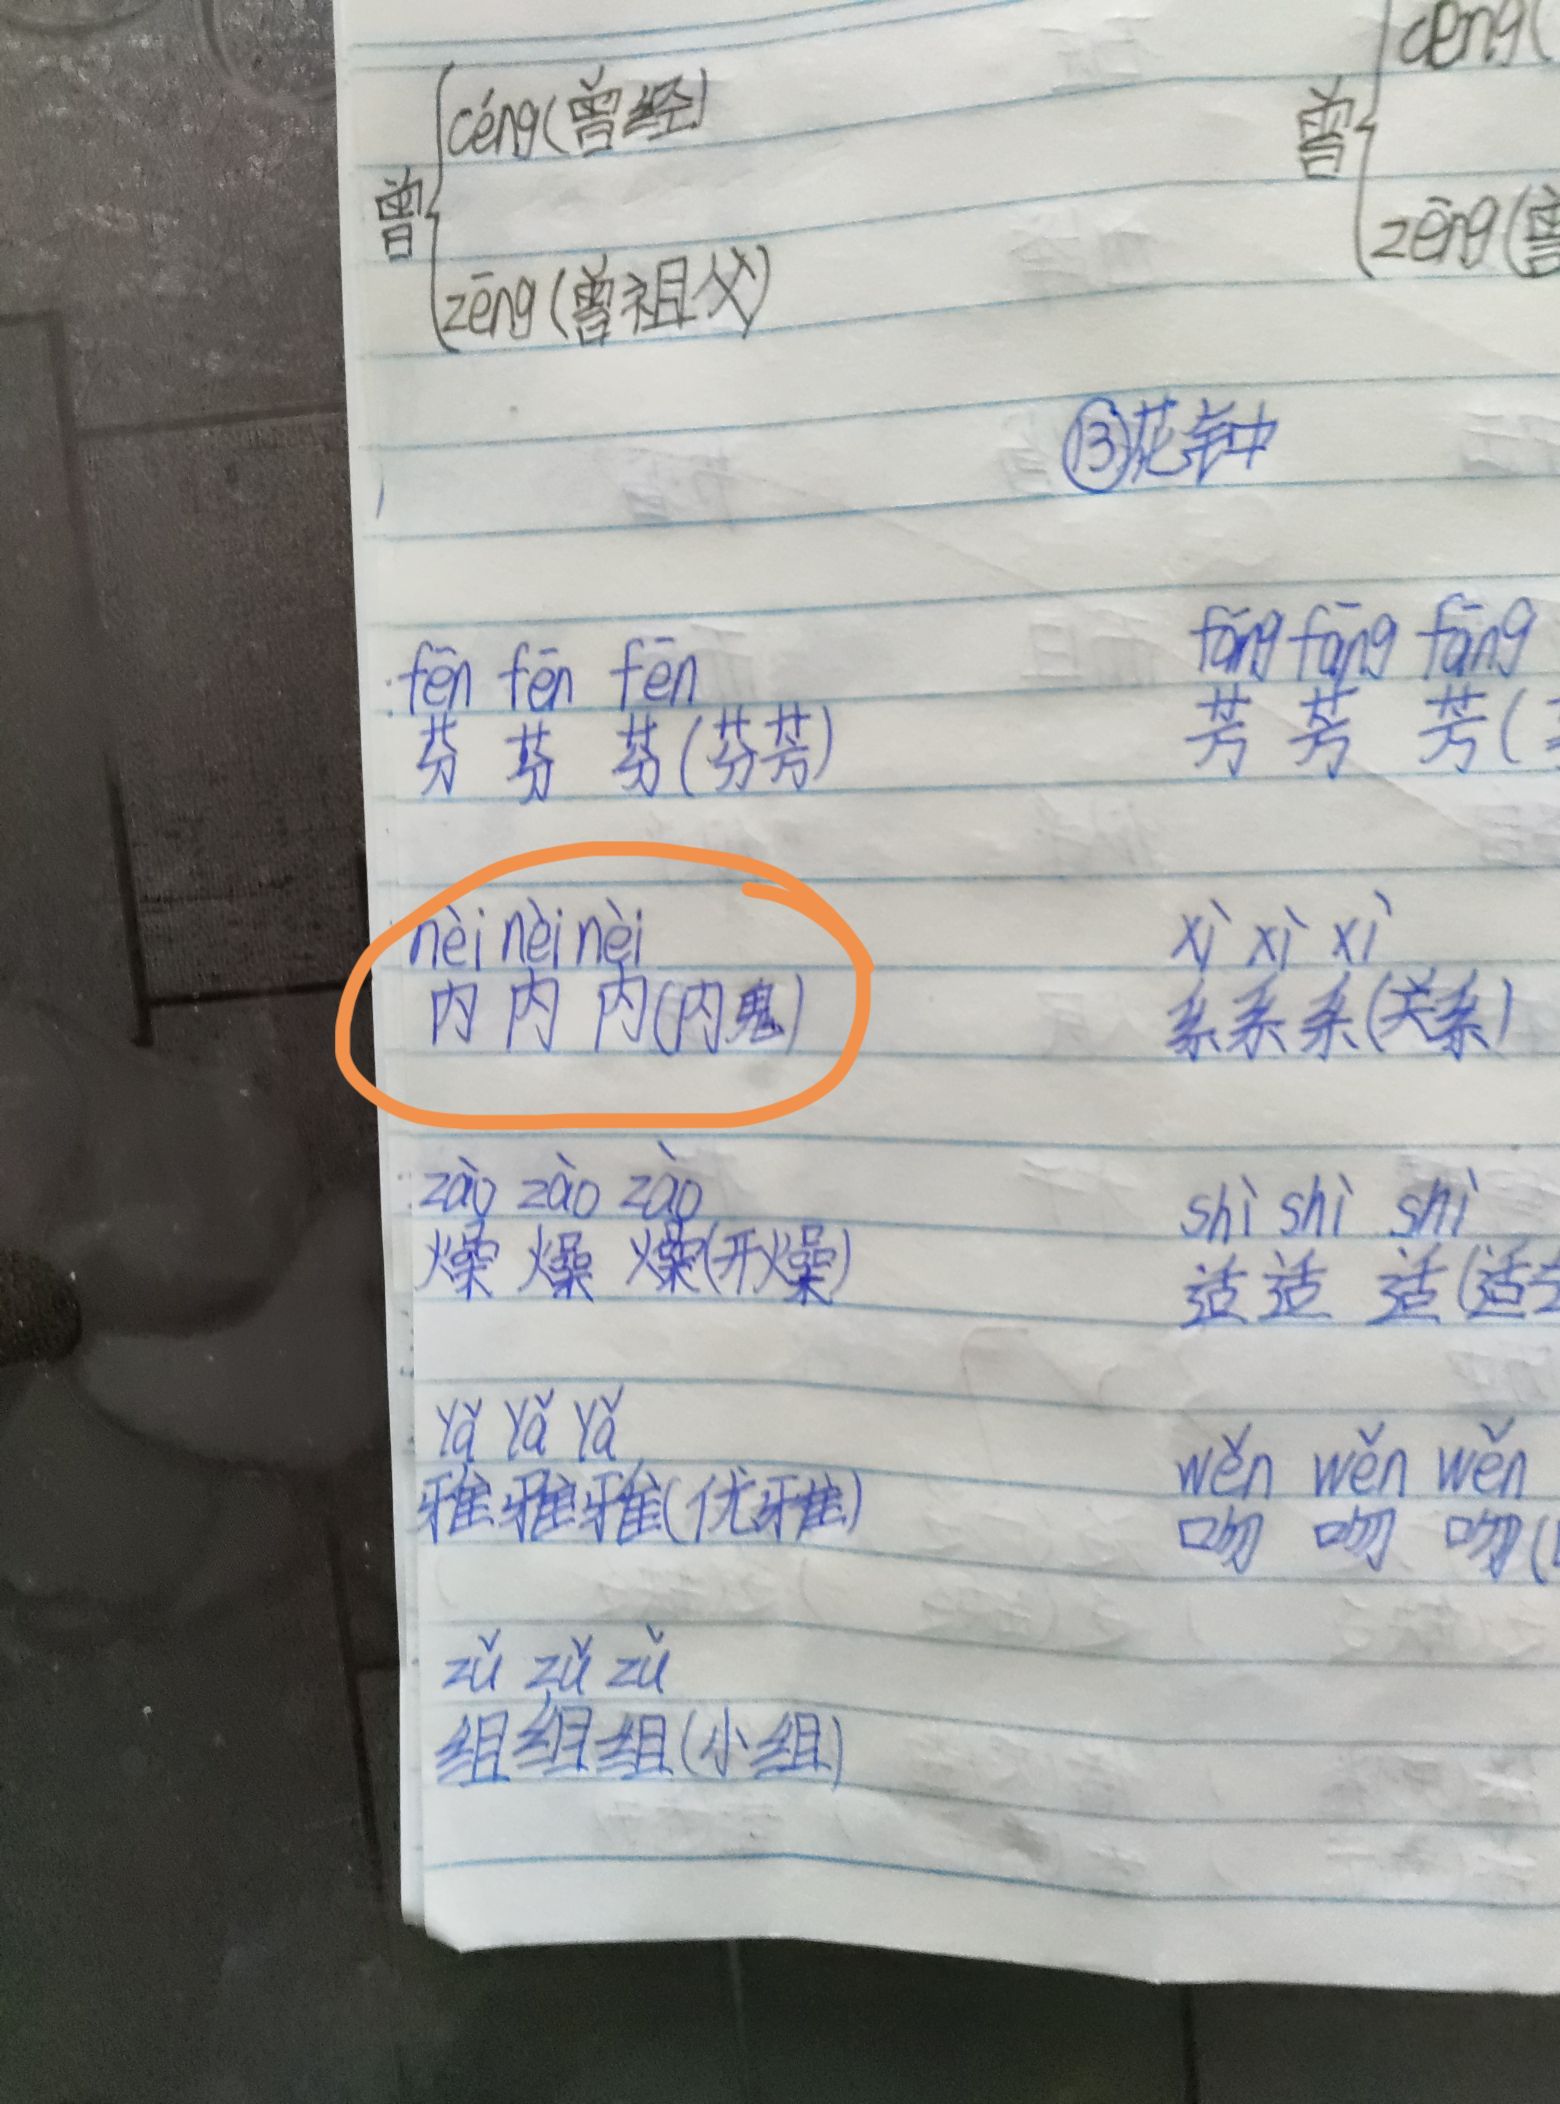 céng(曾经)
曾
zēng(曾祖父)
曾
zēng(曾
⑬花钟
fēn fēn fēn
芬 芬 芬(芬芳)
fāng fāng fāng
芳 芳 芳(
nèi nèi nèi
内 内 内(内鬼)
xì xì xì
系 系 系(关系)
zào zào zào
燥 燥 燥(开燥)
shì shì shì
适 适 适(适
yǎ yǎ yǎ
雅 雅 雅(优雅)
wěn wěn wěn
吻 吻 吻(
zǔ zǔ zǔ
组 组 组(小组)